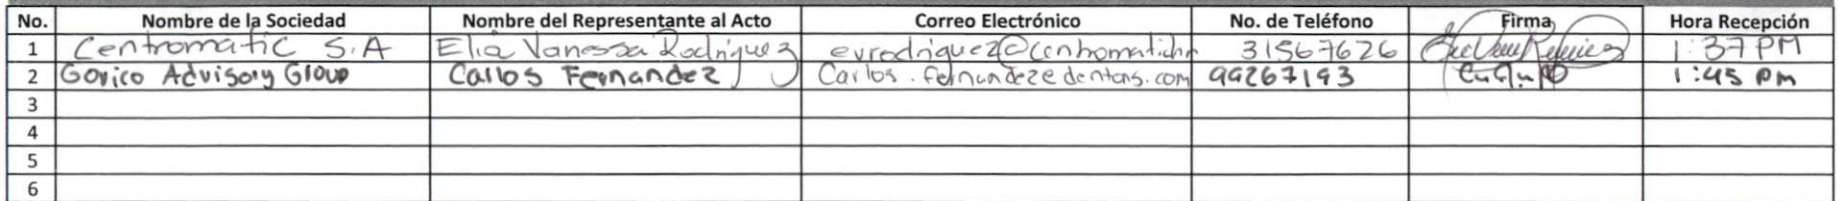 No. Nombre de la Sociedad Nombre del Representante al Acto Correo Electrónico No. de Teléfono Firma Hora Recepción
1 Centromatic S.A Elia Vanessa Rodriguez 31567626 1:37 PM
2 Govico Advisory Group Carlos Fernandez Carlos.fernandez@dentons.com 99267193 1:45 pm
3
4
5
6